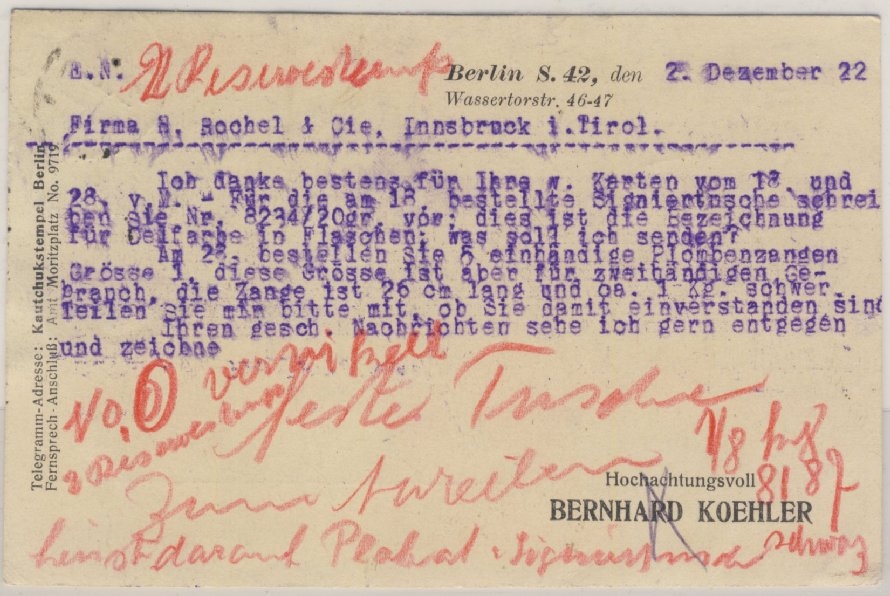 E.N.
Berlin S. 42, den 2. Dezember 22
Wassertorstr. 46-47
Firma H. Rochel & Cie, Innsbruck i.Tirol.
Ich danke bestens für Ihre w. Karten vom 18. und
28. v.M. - Für die am 18. bestellte Signiertusche schrei
ben Sie Nr. 8234/20gr. vor; dies ist die Bezeichnung
für Oelfarbe in Flaschen; was soll ich senden?
Am 28. bestellen Sie 6 einhändige Plombenzangen
Grösse 1, diese Grösse ist aber für zweihändigen Ge-
brauch, die Zange ist 26 cm lang und ca. 1 Kg. schwer.
Teilen Sie mir bitte mit, ob Sie damit einverstanden sind
Ihren gesch. Nachrichten sehe ich gern entgegen
und zeichne
Telegramm-Adresse: Kautchukstempel Berlin
Fernsprech-Anschluß: Amt Moritzplatz No. 9719
No. 0 vernickelt
feste Tusche
1/8 kg
8187
Zum
Hochachtungsvoll
BERNHARD KOEHLER
darauf Plakat
schwarz